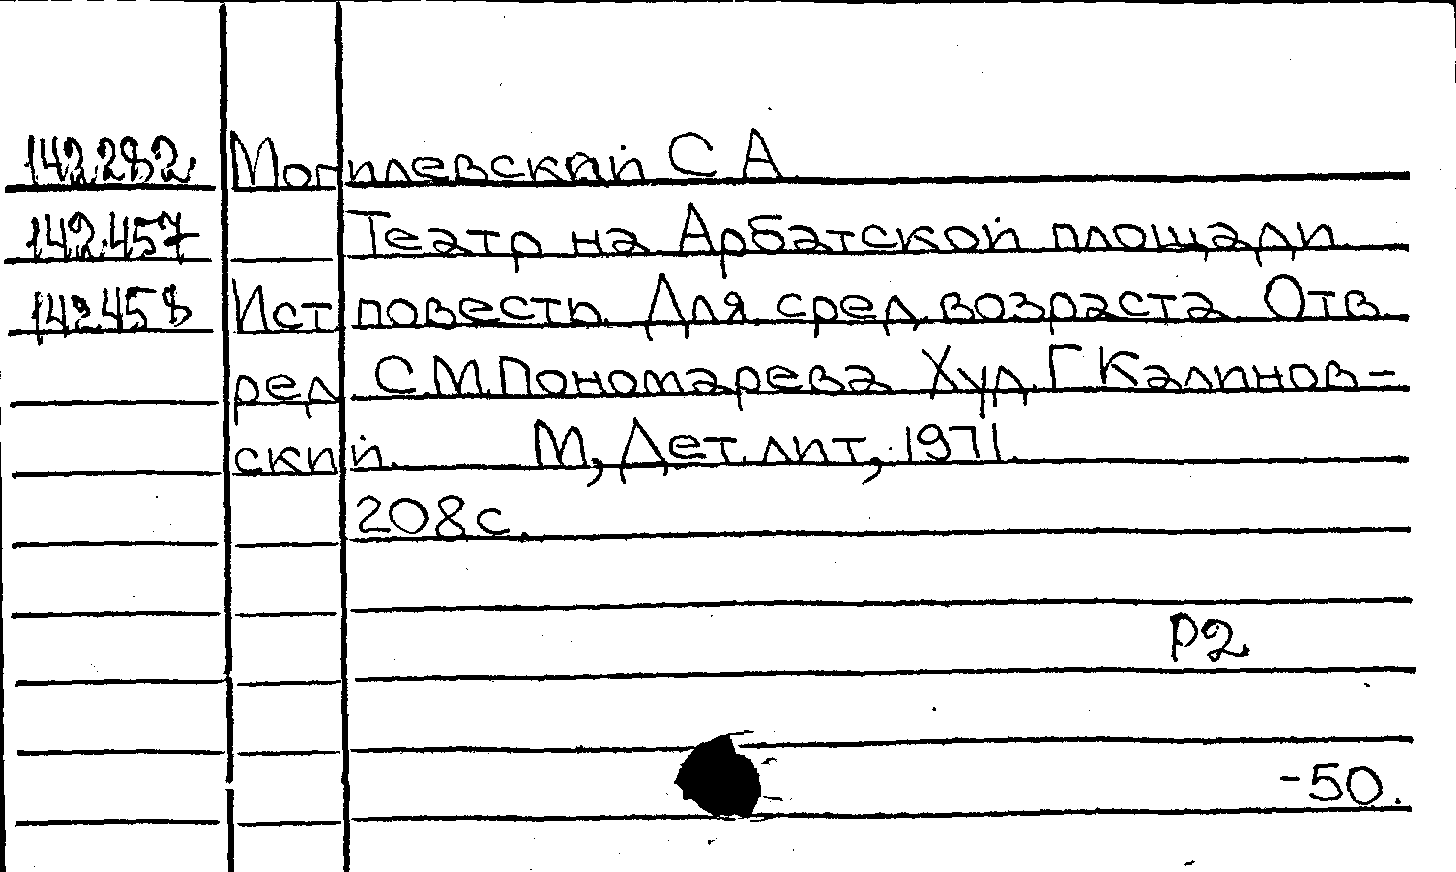 142.282 Могилевский С А
142.457 Театр на Арбатской площади
142458 Ист повесть. Для сред. возраста. Отв.
ред. С.М.Пономарева Худ. Г Калинов-
ский. М, Дет. лит, 1971.
208 с.
Р2
-50.